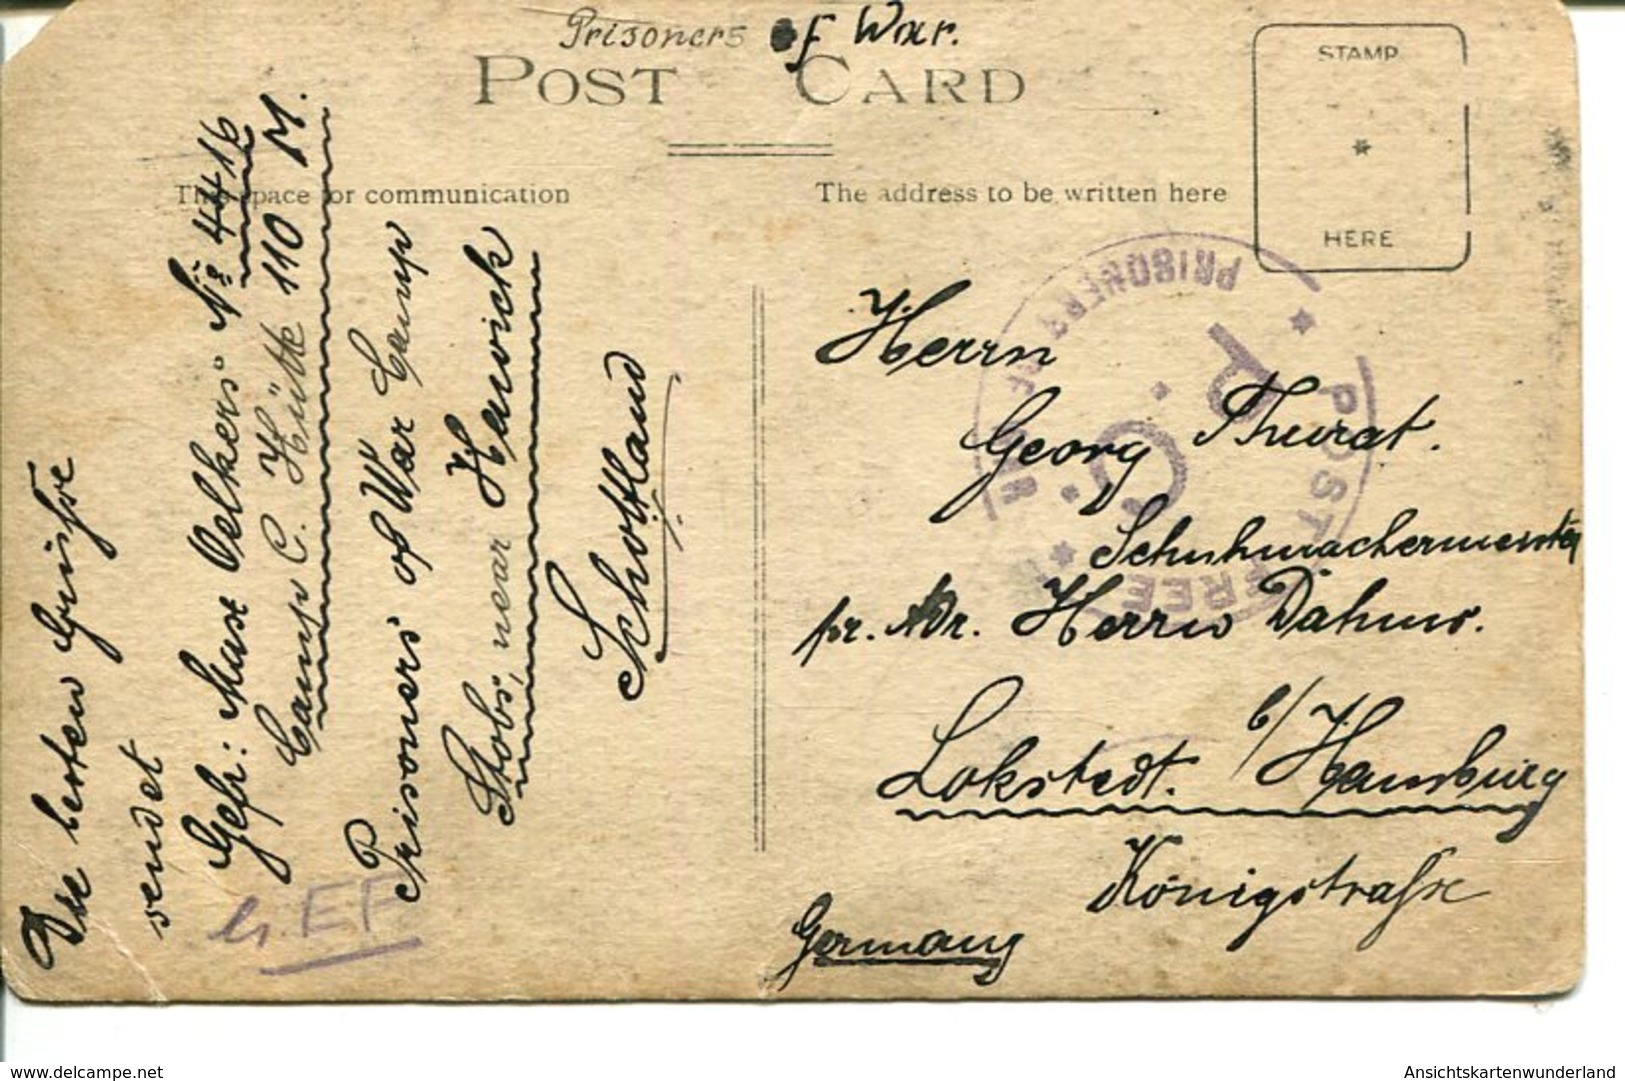 Prisoners of War.
POST CARD
STAMP
HERE
This space for communication
The address to be written here
Die besten Grüsse
sendet
Gefr: Max Oelkers No 4416
Camp C. Hütte 110 M.
Prisoners of War Camp
Stobs, near Hawick
Schottland
Herrn
Georg Thurat.
Schuhmachermeister
pr. Adr. Herrn Dähms.
Lokstedt. b/Hamburg
Königstraße
Germany
POST FREE
PRISONERS OF WAR
P.C.
www.delcampe.net
Ansichtskartenwunderland